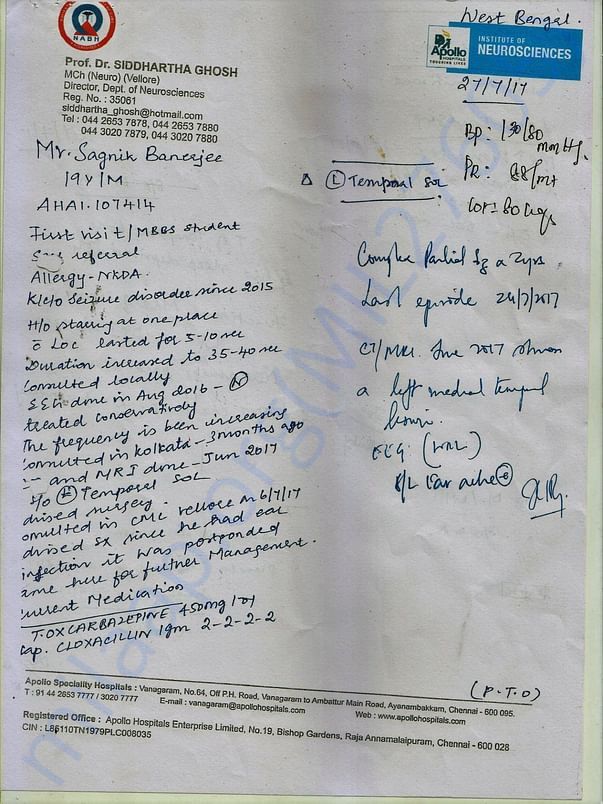 NABH
Prof. Dr. SIDDHARTHA GHOSH
MCh (Neuro) (Vellore)
Director, Dept. of Neurosciences
Reg. No. : 35061
siddhartha_ghosh@hotmail.com
Tel : 044 2653 7878, 044 2653 7880
044 3020 7879, 044 3020 7880
Mr. Sagnik Banerjee
19Y/M
AHA1.107414
First visit / MBBS student
referral
Allergy - NKDA.
K/c/o Seizure disorder since 2015
H/o staring at one place
c̄ LOC lasted for 5-10 sec
Duration increased to 35-40 sec
Consulted locally
EEG done in Aug 2016 - (N)
treated conservatively
The frequency is been increasing
Consulted in Kolkata - 3 months ago
and MRI done - Jun 2017
S/o (L) Temporal SOL
dvised surgery.
onsulted in CMC vellore on 6/7/17
dvised Sx since he had ear
infection it was postponded
ame here for further Management.
Current Medication
T. OXCARBAZEPINE 450mg 1-0-1
Cap. CLOXACILLIN 1gm 2-2-2-2
West Bengal.
Apollo HOSPITALS TOUCHING LIVES
INSTITUTE OF
NEUROSCIENCES
27/7/17
Bp: 130/80 mm Hg.
PR: 88/mt
wt: 80 kgs
Δ (L) Temporal SOL
Complex Partial Sz x 2yrs
Last episode 24/7/2017
CT/MRI. June 2017 shows
a left medial temporal
lesion.
EEG (WNL)
B/L Ear ache
(P.T.O)
Apollo Speciality Hospitals : Vanagaram, No.64, Off P.H. Road, Vanagaram to Ambattur Main Road, Ayanambakkam, Chennai - 600 095.
T : 91 44 2653 7777 / 3020 7777 E-mail : vanagaram@apollohospitals.com Web : www.apollohospitals.com
Registered Office : Apollo Hospitals Enterprise Limited, No.19, Bishop Gardens, Raja Annamalaipuram, Chennai - 600 028
CIN : L85110TN1979PLC008035